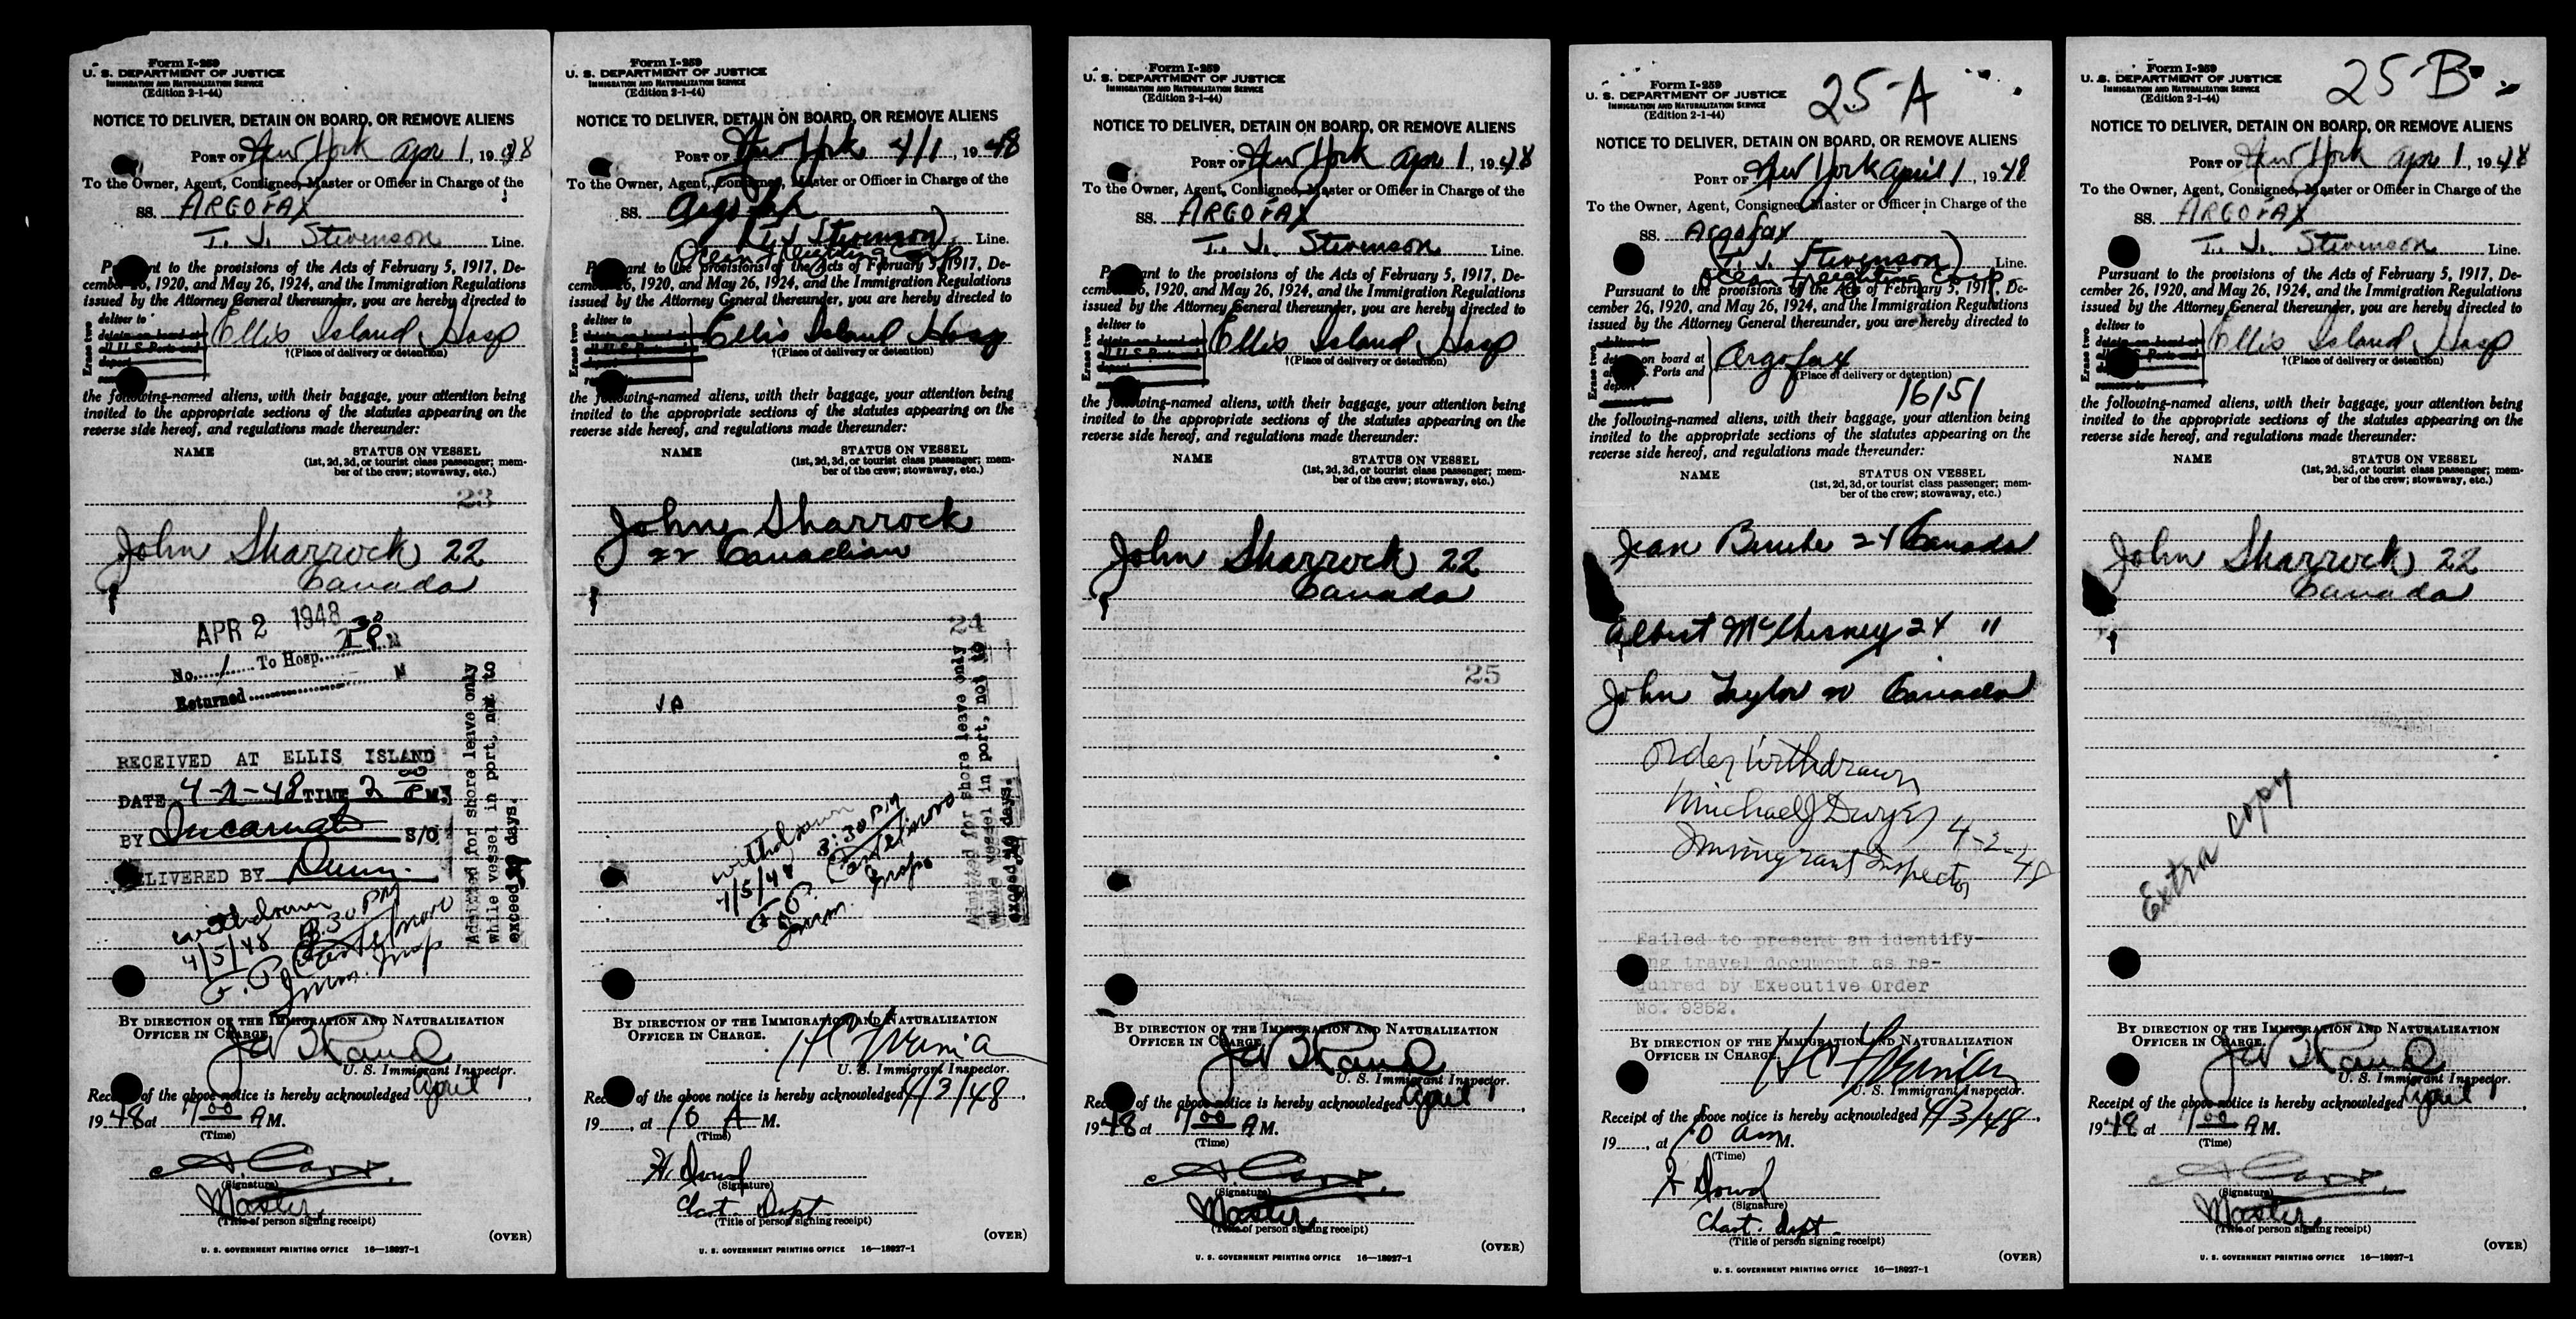 Form I-259
U. S. DEPARTMENT OF JUSTICE
IMMIGRATION AND NATURALIZATION SERVICE
(Edition 2-1-44)
NOTICE TO DELIVER, DETAIN ON BOARD, OR REMOVE ALIENS
PORT OF New York Apr 1, 1948
To the Owner, Agent, Consignee, Master or Officer in Charge of the
SS. ARGOFAX
T. J. Stevenson Line.
to the provisions of the Acts of February 5, 1917, De-
cember 26, 1920, and May 26, 1924, and the Immigration Regulations
issued by the Attorney General thereunder, you are hereby directed to
Erase two
deliver to
Ellis Island Hosp
†(Place of delivery or detention)
the following-named aliens, with their baggage, your attention being
invited to the appropriate sections of the statutes appearing on the
reverse side hereof, and regulations made thereunder:
NAME STATUS ON VESSEL
(1st, 2d, 3d, or tourist class passenger; mem-
ber of the crew; stowaway, etc.)
23
John Sharrock 22
Canada
APR 2 1948
No. 1 To Hosp.
Returned M
RECEIVED AT ELLIS ISLAND
DATE 4-2-48 TIME 2 00 P.M.
BY S/O
DELIVERED BY Dunn
Admitted for shore leave only
while vessel in port, not to
exceed 29 days.
withdrawn
4/5/48 3.30 PM
Imm. Insp
BY DIRECTION OF THE IMMIGRATION AND NATURALIZATION
OFFICER IN CHARGE.
U. S. Immigrant Inspector.
of the above notice is hereby acknowledged April 1,
1948 at 1100 AM.
(Time)
(Signature)
Master
(Title of person signing receipt)
(OVER)
U. S. GOVERNMENT PRINTING OFFICE 16—18927-1
Form I-259
U. S. DEPARTMENT OF JUSTICE
IMMIGRATION AND NATURALIZATION SERVICE
(Edition 2-1-44)
NOTICE TO DELIVER, DETAIN ON BOARD, OR REMOVE ALIENS
PORT OF New York 4/1, 1948
To the Owner, Agent, Consignee, Master or Officer in Charge of the
SS. Argofax
(T J Stevenson) Line.
to the provisions of the Acts of February 5, 1917, De-
cember 26, 1920, and May 26, 1924, and the Immigration Regulations
issued by the Attorney General thereunder, you are hereby directed to
Erase two
deliver to
Ellis Island Hosp
†(Place of delivery or detention)
the following-named aliens, with their baggage, your attention being
invited to the appropriate sections of the statutes appearing on the
reverse side hereof, and regulations made thereunder:
NAME STATUS ON VESSEL
(1st, 2d, 3d, or tourist class passenger; mem-
ber of the crew; stowaway, etc.)
John Sharrock
22 Canadian
24
Admitted for shore leave only
while vessel in port, not to
exceed 29 days.
withdrawn
4/5/48 3:30 PM
Imm. Insp
BY DIRECTION OF THE IMMIGRATION AND NATURALIZATION
OFFICER IN CHARGE.
U. S. Immigrant Inspector.
of the above notice is hereby acknowledged 4/3/48,
19 , at 10 A M.
(Time)
H. Dowd
(Signature)
Chart. Dept.
(Title of person signing receipt)
(OVER)
U. S. GOVERNMENT PRINTING OFFICE 16—18927-1
Form I-259
U. S. DEPARTMENT OF JUSTICE
IMMIGRATION AND NATURALIZATION SERVICE
(Edition 2-1-44)
NOTICE TO DELIVER, DETAIN ON BOARD, OR REMOVE ALIENS
PORT OF New York Apr 1, 1948
To the Owner, Agent, Consignee, Master or Officer in Charge of the
SS. ARGOFAX
T. J. Stevenson Line.
to the provisions of the Acts of February 5, 1917, De-
cember 26, 1920, and May 26, 1924, and the Immigration Regulations
issued by the Attorney General thereunder, you are hereby directed to
Erase two
deliver to
Ellis Island Hosp
†(Place of delivery or detention)
the following-named aliens, with their baggage, your attention being
invited to the appropriate sections of the statutes appearing on the
reverse side hereof, and regulations made thereunder:
NAME STATUS ON VESSEL
(1st, 2d, 3d, or tourist class passenger; mem-
ber of the crew; stowaway, etc.)
John Sharrock 22
Canada
25
BY DIRECTION OF THE IMMIGRATION AND NATURALIZATION
OFFICER IN CHARGE.
U. S. Immigrant Inspector.
of the above notice is hereby acknowledged April 1,
1948 at 1100 AM.
(Time)
(Signature)
Master
(Title of person signing receipt)
(OVER)
U. S. GOVERNMENT PRINTING OFFICE 16—18927-1
25-A
Form I-259
U. S. DEPARTMENT OF JUSTICE
IMMIGRATION AND NATURALIZATION SERVICE
(Edition 2-1-44)
NOTICE TO DELIVER, DETAIN ON BOARD, OR REMOVE ALIENS
PORT OF New York April 1, 1948
To the Owner, Agent, Consignee, Master or Officer in Charge of the
SS. Argofax
(T. J. Stevenson) Line.
Pursuant to the provisions of the Acts of February 5, 1917, De-
cember 26, 1920, and May 26, 1924, and the Immigration Regulations
issued by the Attorney General thereunder, you are hereby directed to
Erase two
detain on board at
all U. S. Ports and
deport
Argofax
(Place of delivery or detention)
16/51
the following-named aliens, with their baggage, your attention being
invited to the appropriate sections of the statutes appearing on the
reverse side hereof, and regulations made thereunder:
NAME STATUS ON VESSEL
(1st, 2d, 3d, or tourist class passenger; mem-
ber of the crew; stowaway, etc.)
Jean Canada
Albert McChesney 24 "
John Taylor 20 Canada
Order Withdrawn
Michael J Dwyer
Immigrant Inspector 4-2-48
Failed to present an identify-
ing travel document as re-
quired by Executive Order
No. 9352.
BY DIRECTION OF THE IMMIGRATION AND NATURALIZATION
OFFICER IN CHARGE.
U. S. Immigrant Inspector.
Receipt of the above notice is hereby acknowledged 4/3/48,
19 , at 10 am M.
(Time)
H Dowd
(Signature)
Chart. Dept.
(Title of person signing receipt)
(OVER)
U. S. GOVERNMENT PRINTING OFFICE 16—18927-1
25-B
Form I-259
U. S. DEPARTMENT OF JUSTICE
IMMIGRATION AND NATURALIZATION SERVICE
(Edition 2-1-44)
NOTICE TO DELIVER, DETAIN ON BOARD, OR REMOVE ALIENS
PORT OF New York Apr 1, 1948
To the Owner, Agent, Consignee, Master or Officer in Charge of the
SS. ARGOFAX
T. J. Stevenson Line.
Pursuant to the provisions of the Acts of February 5, 1917, De-
cember 26, 1920, and May 26, 1924, and the Immigration Regulations
issued by the Attorney General thereunder, you are hereby directed to
Erase two
deliver to
Ellis Island Hosp
†(Place of delivery or detention)
the following-named aliens, with their baggage, your attention being
invited to the appropriate sections of the statutes appearing on the
reverse side hereof, and regulations made thereunder:
NAME STATUS ON VESSEL
(1st, 2d, 3d, or tourist class passenger; mem-
ber of the crew; stowaway, etc.)
John Sharrock 22
Canada
Extra copy
BY DIRECTION OF THE IMMIGRATION AND NATURALIZATION
OFFICER IN CHARGE.
U. S. Immigrant Inspector.
Receipt of the above notice is hereby acknowledged April 1,
1948 at 1100 AM.
(Time)
(Signature)
Master
(Title of person signing receipt)
(OVER)
U. S. GOVERNMENT PRINTING OFFICE 16—18927-1